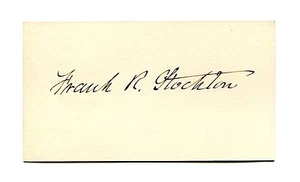 Frank R. Stockton